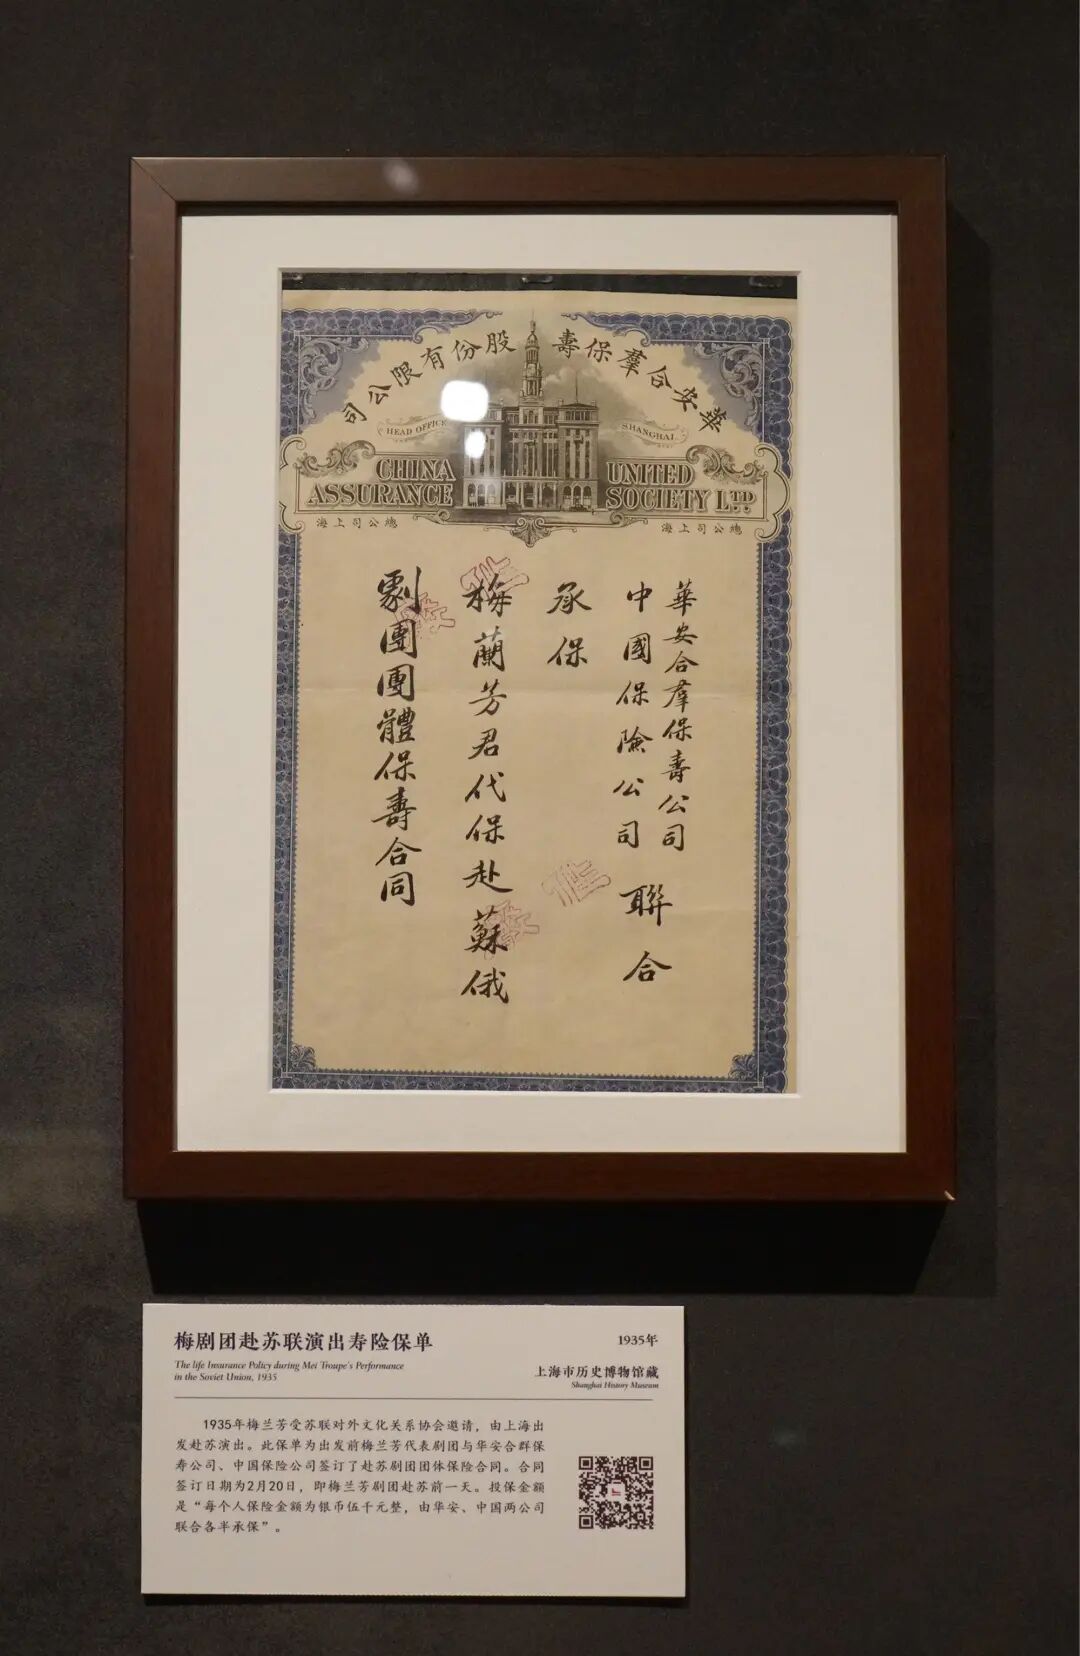 華安合羣保壽股份有限公司
HEAD OFFICE
SHANGHAI
CHINA
ASSURANCE
UNITED
SOCIETY LTD.
總公司上海
總公司上海
華安合羣保壽公司
中國保險公司
聯合
承保
梅蘭芳君代保赴蘇俄
劇團團體保壽合同
梅剧团赴苏联演出寿险保单
The life Insurance Policy during Mei Troupe's Performance
in the Soviet Union, 1935
1935年
上海市历史博物馆藏
Shanghai History Museum
1935年梅兰芳受苏联对外文化关系协会邀请，由上海出
发赴苏演出。此保单为出发前梅兰芳代表剧团与华安合群保
寿公司、中国保险公司签订了赴苏剧团团体保险合同。合同
签订日期为2月20日，即梅兰芳剧团赴苏前一天。投保金额
是“每个人保险金额为银币伍千元整，由华安、中国两公司
联合各半承保”。